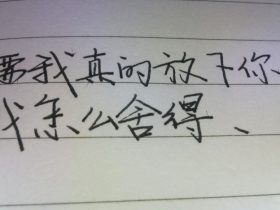 要我真的放下你、
我怎么舍得、